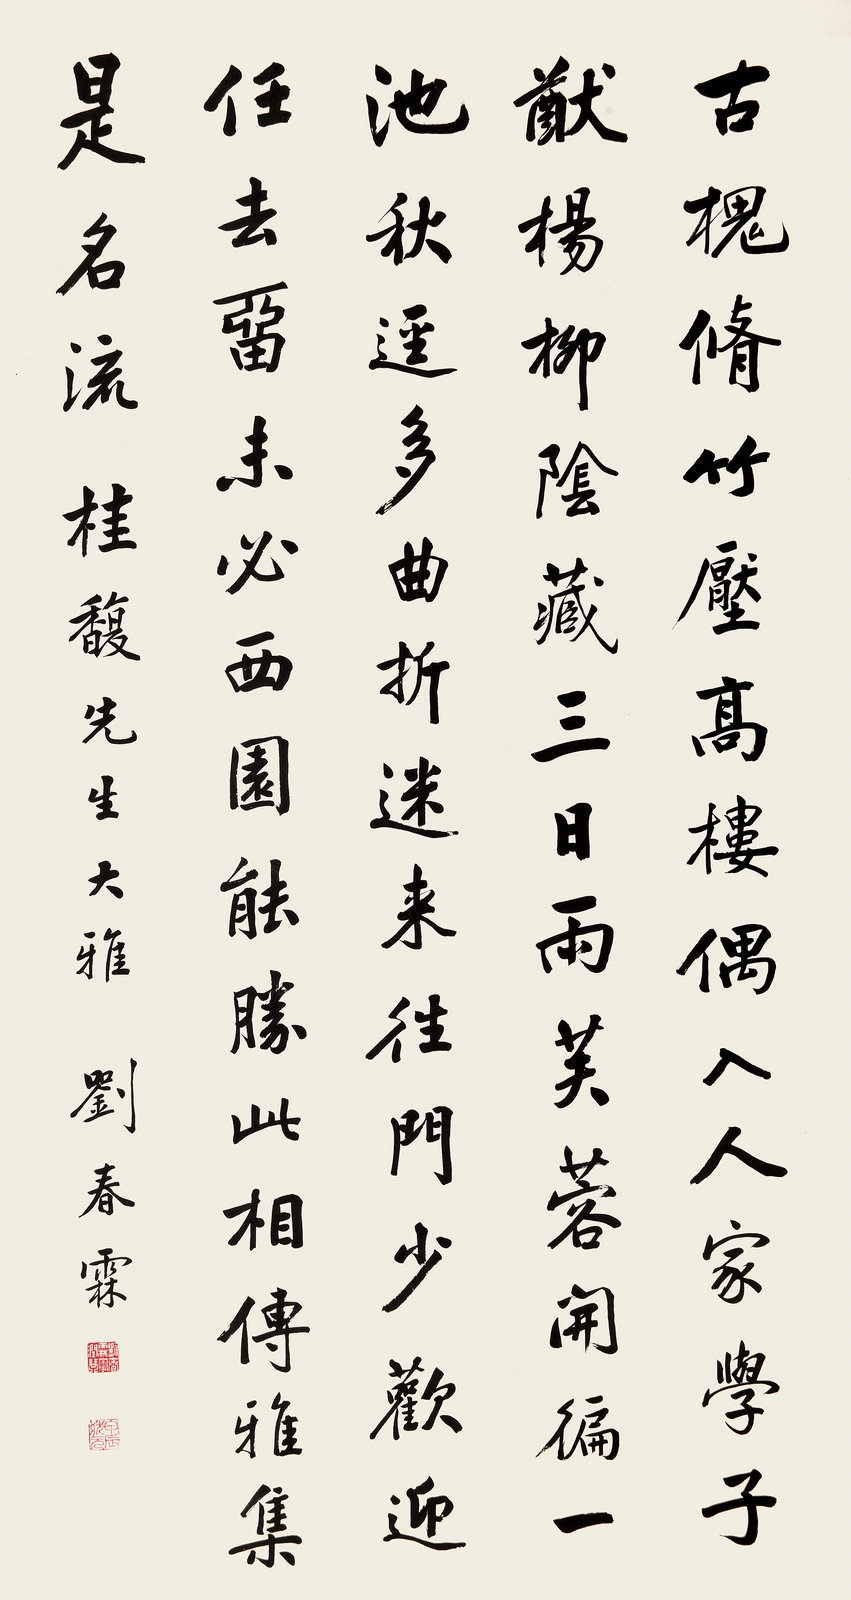 古槐脩竹壓高樓偶入人家學子
猷楊柳陰藏三日雨芙蓉開徧一
池秋逕多曲折迷来往門少歡迎
任去畱未必西園能勝此相傳雅集
是名流 桂馥先生大雅 劉春霖